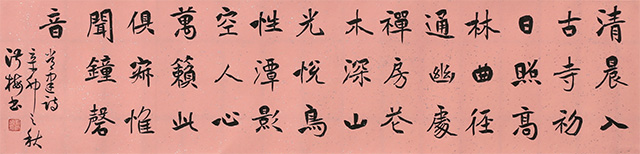 清晨入
古寺初
日照高
林曲徑
通幽處
禪房花
木深山
光悅鳥
性潭影
空人心
萬籟此
俱寂惟
聞鐘磬
音
常建詩
辛卯之秋
梅書